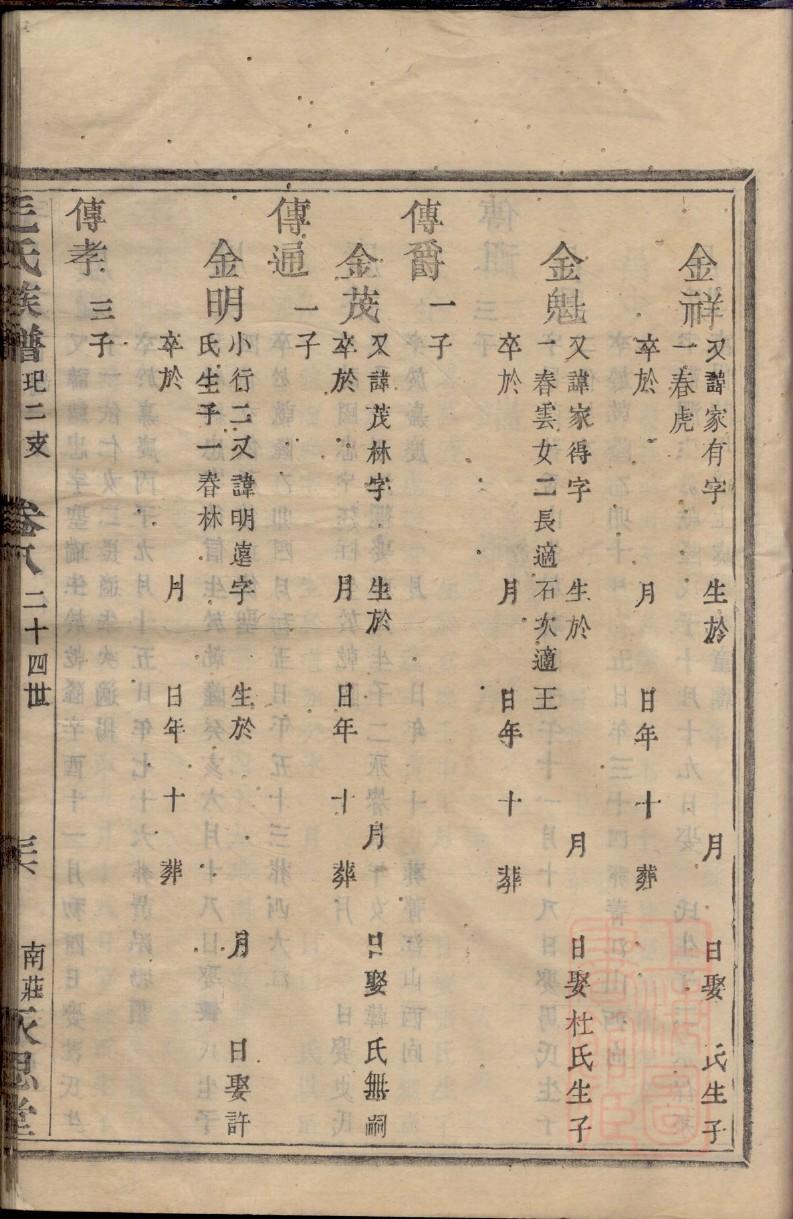 金祥
又諱家有字 生於 月 日娶 氏生子
一春虎
卒於 月 日年 十 葬
金魁
又諱家得字 生於 月 日娶杜氏生子
一春雲女二長適石次適王
卒於 月 日年 十 葬
傳爵 一子
金茂
又諱茂林字 生於 月 日娶韓氏無嗣
卒於 月 日年 十 葬
傳通 一子
金明
小行二又諱明遠字 生於 月 日娶許
氏生子一春林
卒於 月 日年 十 葬
傳孝 三子
氏族譜 玘二支 卷八 二十四世 南莊